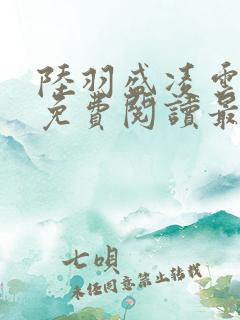 陸羽盛凌雲
免費閱讀最
七唄
未经同意禁止转载